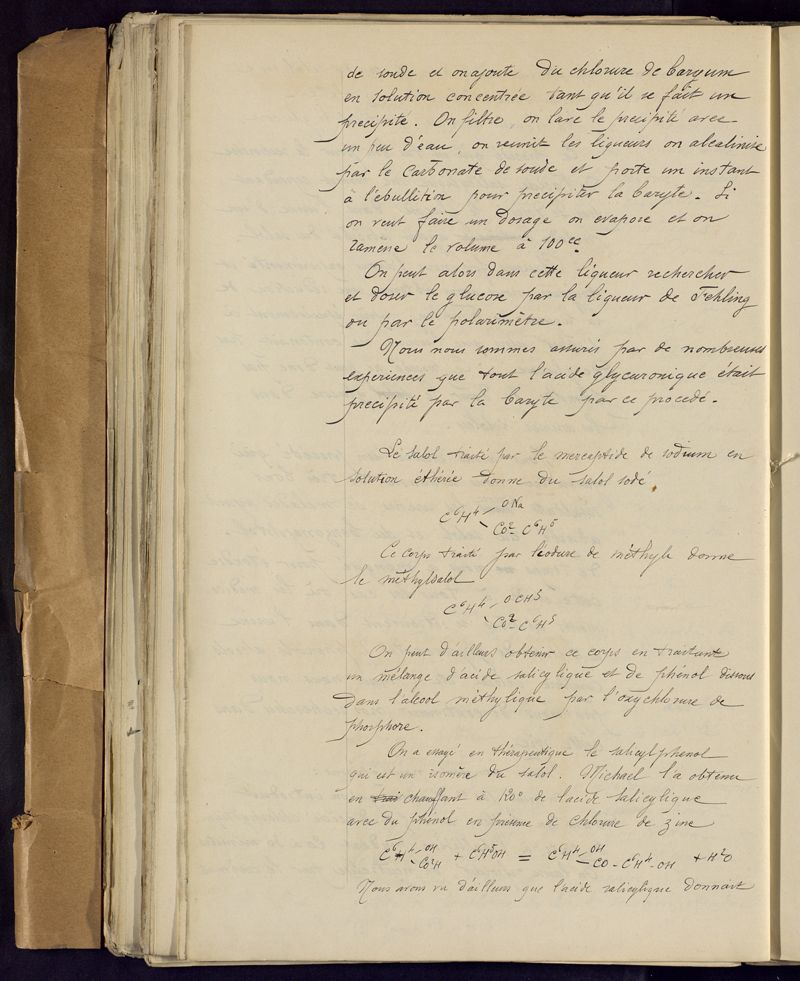 de soude et on ajoute du chlorure de baryum
en solution concentrée tant qu'il se fait un
precipité. On filtre, on lave le precipité avec
un peu d'eau, on reunit les liqueurs on alcalinise
par le Carbonate de soude et porte un instant
à l'ebullition pour precipiter la baryte. Si
on veut faire un dosage on evapore et on
ramène le volume à 100cc.
On peut alors dans cette liqueur rechercher
et doser le glucose par la liqueur de Fehling
ou par le polarimètre.
Nous nous sommes assurés par de nombreuses
experiences que tout l'acide glycuronique était
precipité par la baryte par ce procedé.
Le salol traité par le mercaptide de sodium en
solution éthérée donne du salol sodé.
C⁶H⁴ ONa
CO² - C⁶H⁵
Ce corps traité par l'iodure de méthyle donne
le méthylsalol
C⁶H⁴ OCH³
CO² - C⁶H⁵
On peut d'ailleurs obtenir ce corps en traitant
un mélange d'acide salicylique et de phénol dissous
dans l'alcool méthylique par l'oxychlorure de
phosphore.
On a essayé en thérapeutique le salicylphenol
qui est un isomère du salol. Michael l'a obtenu
en chauffant à 120° de l'acide salicylique
avec du phénol en présence de chlorure de zinc
C⁶H⁴ OH CO²H + C⁶H⁵OH = C⁶H⁴ OH CO - C⁶H⁴ - OH + H²O
Nous avons vu d'ailleurs que l'acide salicylique donnait